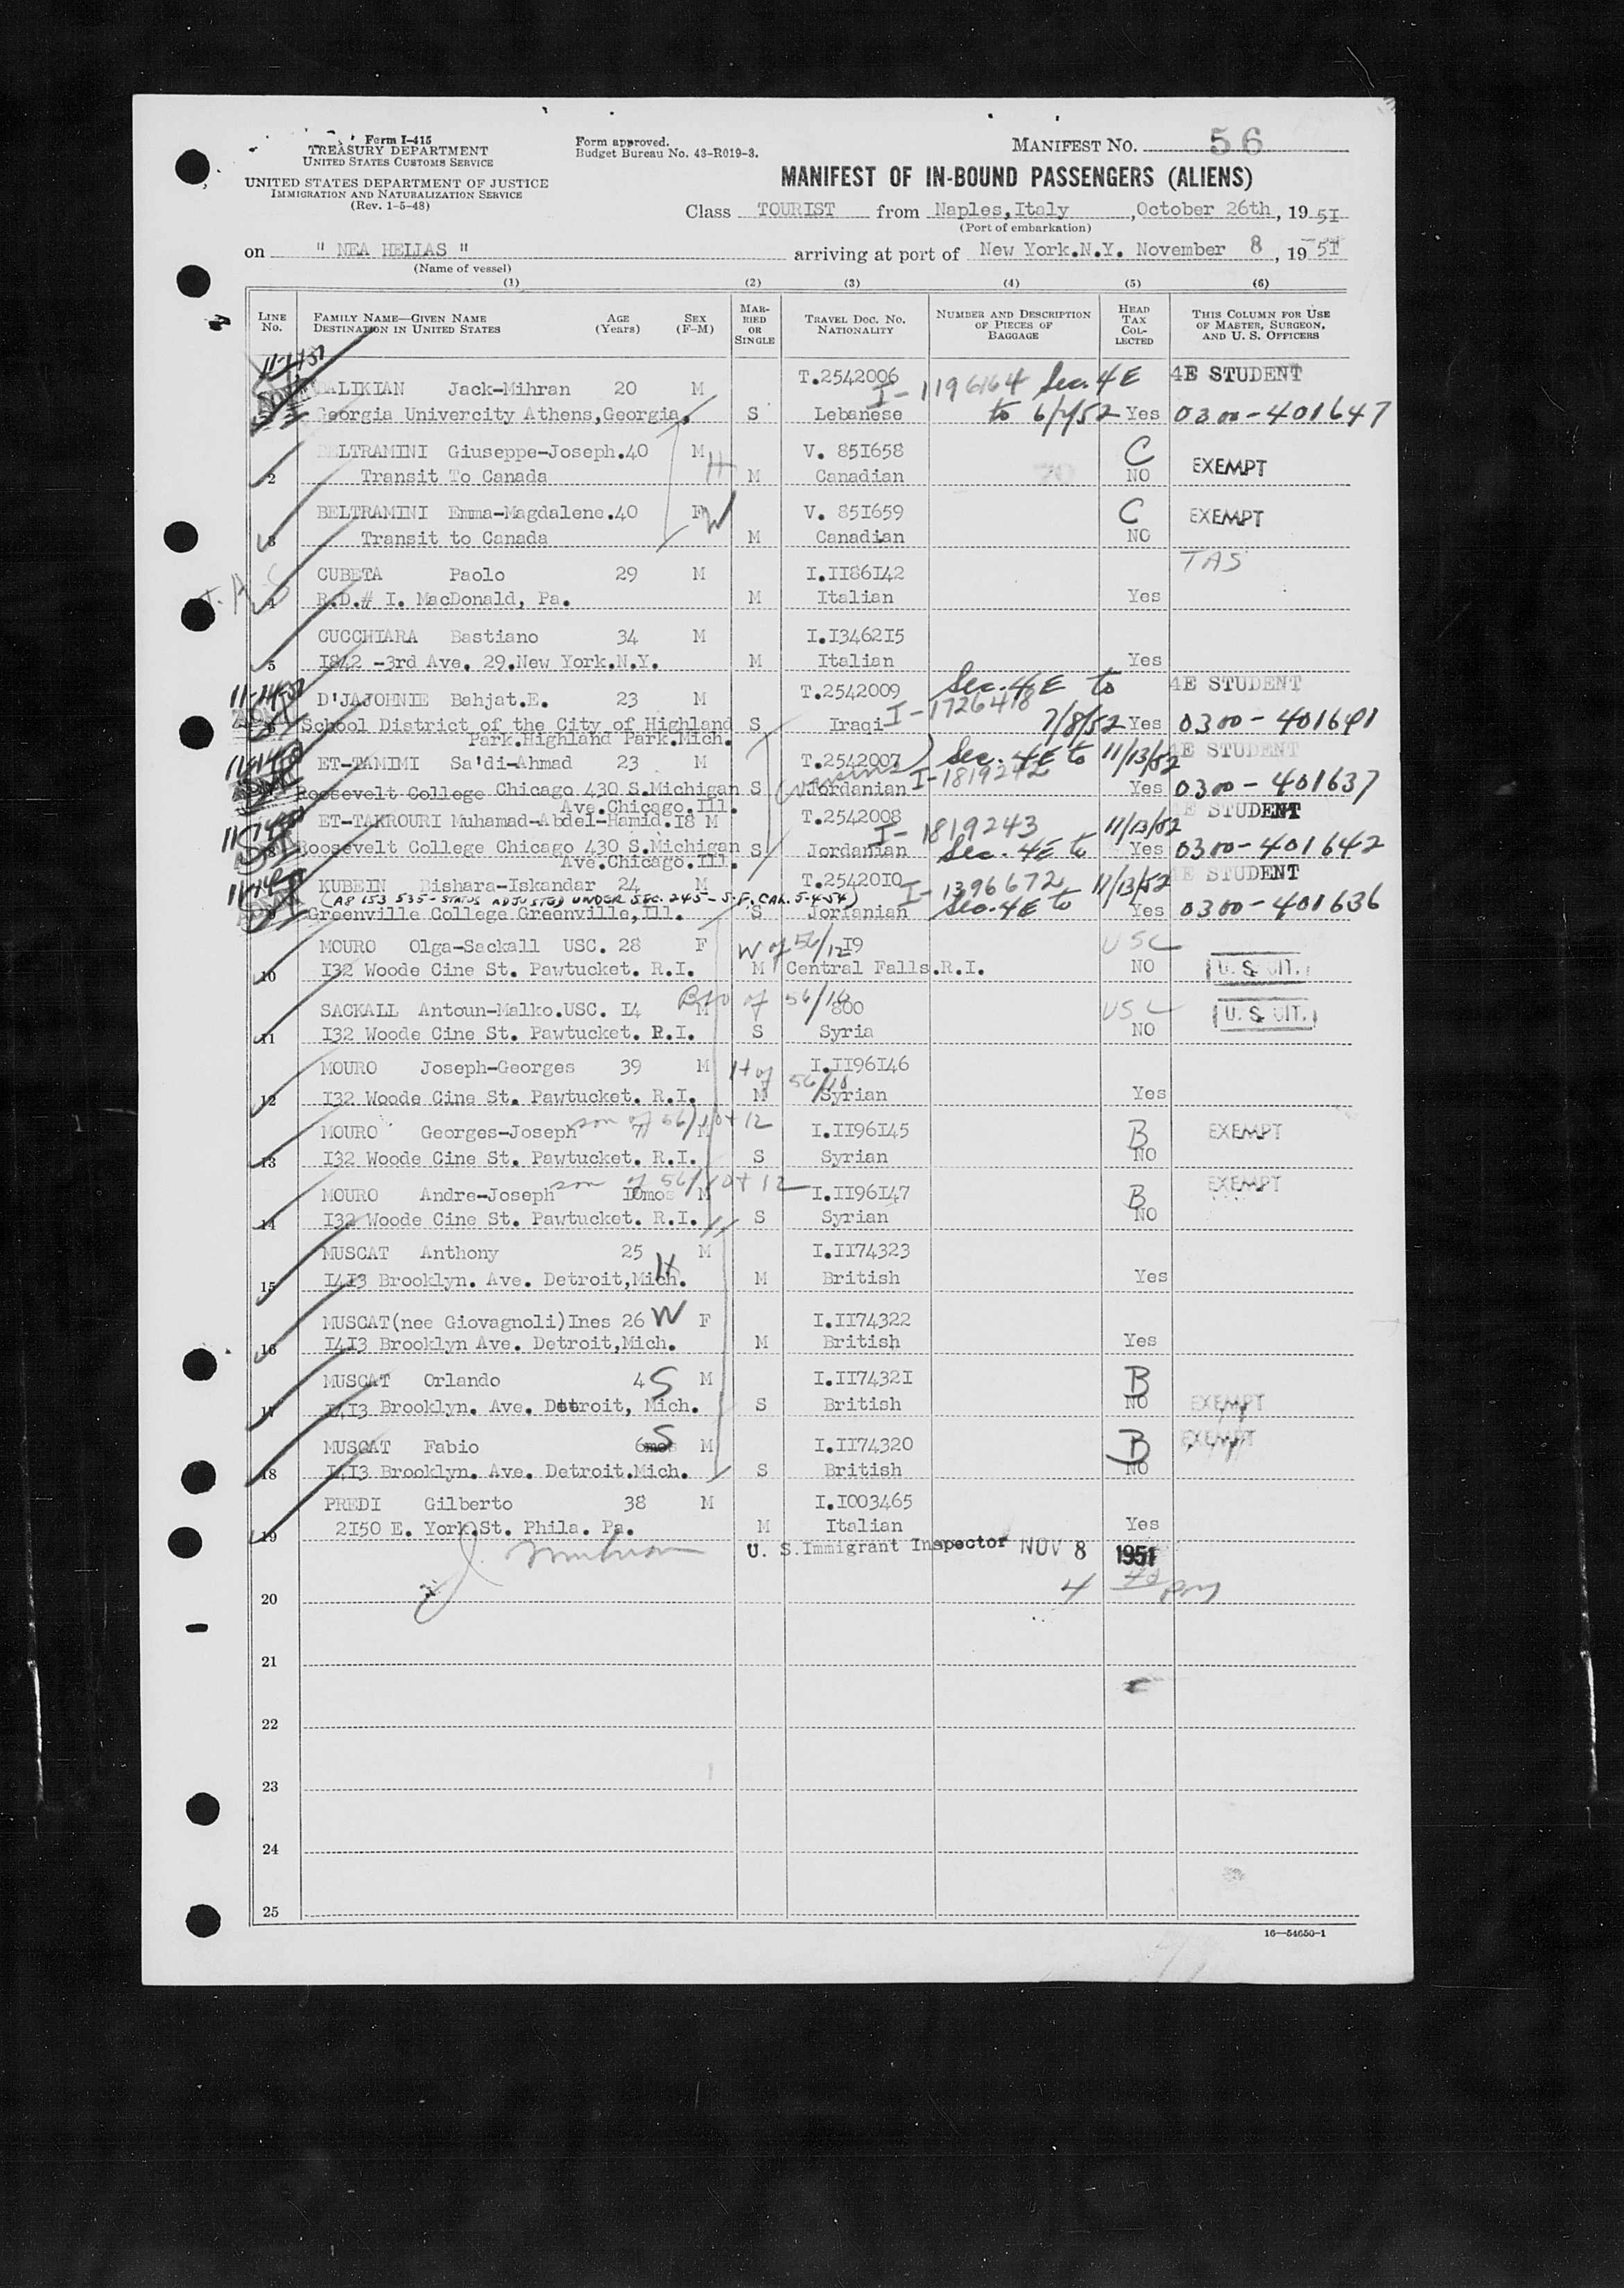 Form I-415
TREASURY DEPARTMENT
UNITED STATES CUSTOMS SERVICE
UNITED STATES DEPARTMENT OF JUSTICE
IMMIGRATION AND NATURALIZATION SERVICE
(Rev. 1-5-48)
Form approved.
Budget Bureau No. 43-R019-3.
MANIFEST NO. 56
MANIFEST OF IN-BOUND PASSENGERS (ALIENS)
Class TOURIST from Naples,Italy ,October 26th, 1951
(Port of embarkation)
on " NEA HELLAS " arriving at port of New York.N.Y. November 8, 1951
(Name of vessel)
(1) (2) (3) (4) (5) (6)
LINE No. FAMILY NAME—GIVEN NAME DESTINATION IN UNITED STATES AGE (Years) SEX (F-M) MARRIED OR SINGLE TRAVEL DOC. NO. NATIONALITY NUMBER AND DESCRIPTION OF PIECES OF BAGGAGE HEAD TAX COLLECTED THIS COLUMN FOR USE OF MASTER, SURGEON, AND U. S. OFFICERS
ALIKIAN Jack-Mihran 20 M T.2542006 I-1196164 Sec. 4E 4E STUDENT
Georgia Univercity Athens,Georgia. S Lebanese to 6/ /52 Yes 0300-401647
BELTRAMINI Giuseppe-Joseph.40 M V. 851658 C EXEMPT
2 Transit To Canada H M Canadian NO
BELTRAMINI Emma-Magdalene.40 F W V. 851659 C EXEMPT
3 Transit to Canada M Canadian NO
TAS
CUBETA Paolo 29 M I.II86I42
4 R.D.# I. MacDonald, Pa. M Italian Yes
CUCCHIARA Bastiano 34 M I.I3462I5
5 I842 -3rd Ave. 29.New York.N.Y. M Italian Yes
11-14-51 D'JAJOHNIE Bahjat.E. 23 M T.2542009 Sec. 4E to 4E STUDENT
6 School District of the City of Highland S Iraqi I-1726418 7/8/52 Yes 0300-401641
Park.Highland Park.Mich.
ET-TAMIMI Sa'di-Ahmad 23 M T.2542007 Sec. 4E to 11/13/52 4E STUDENT
Roosevelt College Chicago 430 S.Michigan S Jordanian I-1819242 Yes 0300-401637
Ave.Chicago.Ill.
ET-TAKROURI Muhamad-Abdel-Hamid.I8 M T.2542008 I-1819243 11/13/52 4E STUDENT
8 Roosevelt College Chicago 430 S.Michigan S Jordanian Sec. 4E to Yes 0300-401642
Ave.Chicago.Ill.
KUBEIN Bishara-Iskandar 24 M T.2542010 I-1396672 11/13/52 4E STUDENT
(A8 153 535 - STATUS ADJUSTED UNDER SEC. 245 - S.F. CAL. 5-4-54)
9 Greenville College Greenville,Ill. S Jordanian Sec. 4E to Yes 0300-401636
MOURO Olga-Sackall USC. 28 F W of 56/12 I9 USC
10 I32 Woode Cine St. Pawtucket. R.I. M Central Falls.R.I. NO U. S. CIT.
SACKALL Antoun-Malko.USC. I4 M Bro of 56/10 800 USC
11 I32 Woode Cine St. Pawtucket. R.I. S Syria NO U. S. CIT.
MOURO Joseph-Georges 39 M H of 56/10 I.II96I46
12 I32 Woode Cine St. Pawtucket. R.I. M Syrian Yes
MOURO Georges-Joseph son of 56/10+12 M I.II96I45 B EXEMPT
13 I32 Woode Cine St. Pawtucket. R.I. S Syrian NO
MOURO Andre-Joseph son of 56/10+12 I0mos M I.II96I47 B EXEMPT
14 I32 Woode Cine St. Pawtucket. R.I. S Syrian NO
MUSCAT Anthony 25 M I.II74323
15 I4I3 Brooklyn. Ave. Detroit,Mich. H M British Yes
MUSCAT(nee Giovagnoli)Ines 26 W F I.II74322
16 I4I3 Brooklyn Ave. Detroit,Mich. M British Yes
MUSCAT Orlando 4 S M I.II7432I B
17 I4I3 Brooklyn. Ave. Detroit, Mich. S British NO EXEMPT
MUSCAT Fabio 6mos S M I.II74320 B EXEMPT
18 I4I3 Brooklyn. Ave. Detroit.Mich. S British NO
PREDI Gilberto 38 M I.I003465
19 2I50 E. York.St. Phila. Pa. M Italian Yes
U. S. Immigrant Inspector NOV 8 1951
20
21
22
23
24
25
16—54650-1